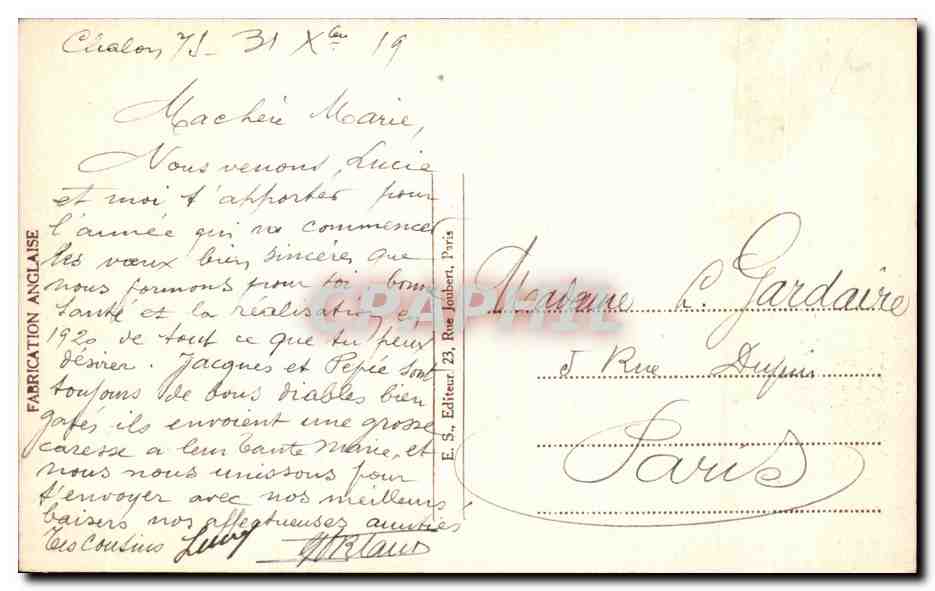 Châlon 7/S - 31 Xbre 19
Ma chère Marie,
Nous venons, Lucie
et moi t'apporter pour
l'année qui va commencer
les vœux bien sincères que
nous formons pour toi bonne
santé et la réalisation en
1920 de tout ce que tu peux
désirer. Jacques et Pépée sont
toujours de bons diables bien
gatés ils envoient une grosse
caresse a leur tante Marie, et
nous nous unissons pour
t'envoyer avec nos meilleurs
baisers nos affectueuses amitiés
Tes cousins
FABRICATION ANGLAISE
E. S., Editeur, 23, Rue Joubert, Paris
CPAPHIL
Madame L. Gardaire
5 Rue Dupin
Paris